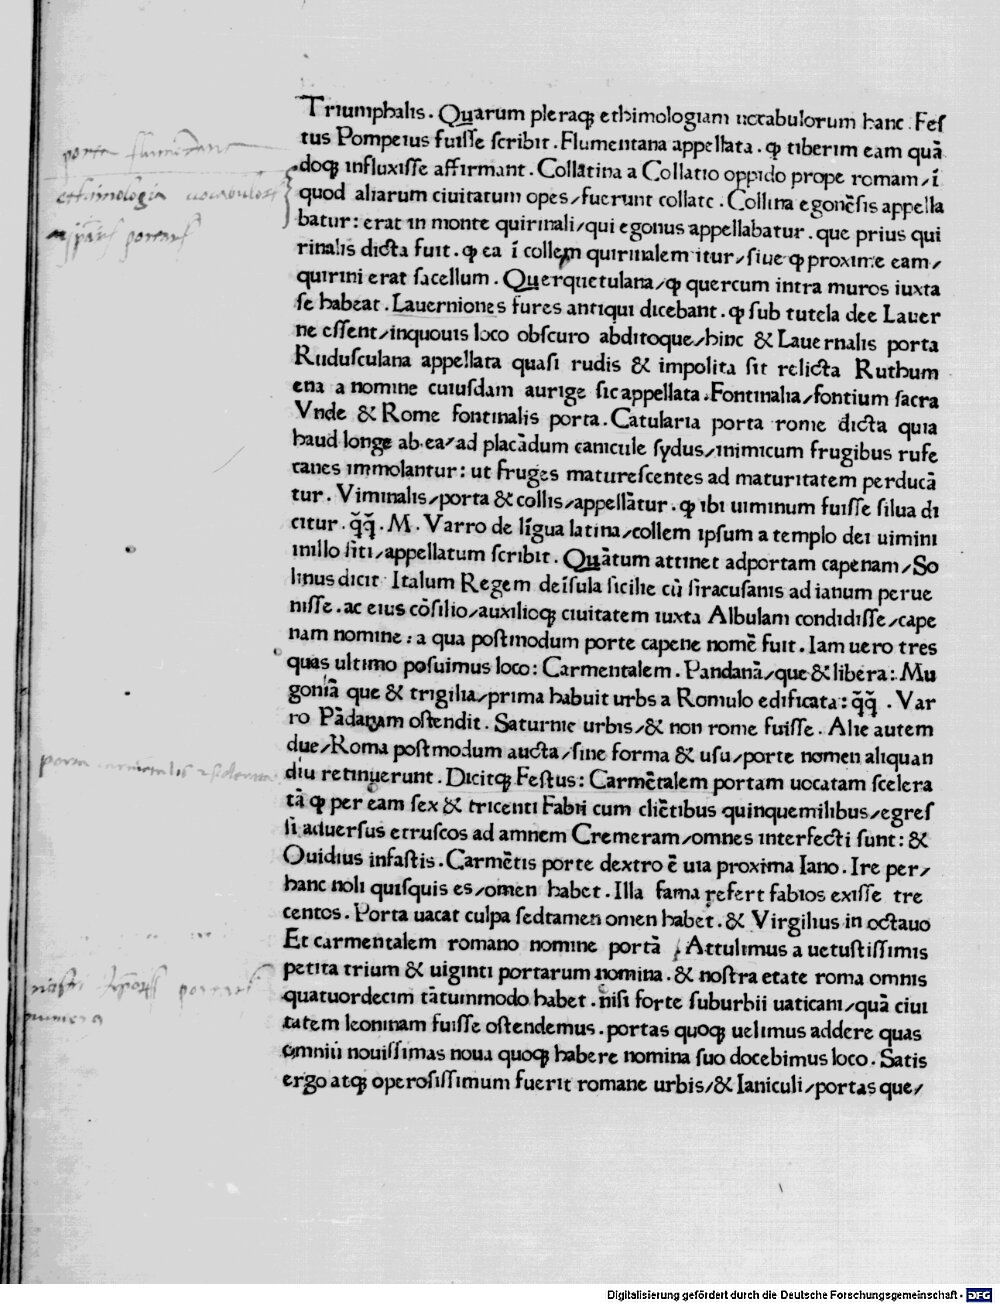 Triumphalis . Quarum pleraqꝫ ethimologiam uocabulorum hanc . Feſ
tus Pompeius fuiſſe ſcribit . Flumentana appellata . ꝙ tiberim eam quā
doqꝫ influxiſſe affirmant . Collātina a Collatio oppido prope romam/ī
quod aliarum ciuitatum opes/fuerunt collate . Collina egonēſis appella
batur : erat in monte quirinali/qui egonus appellabatur . que prius qui
rinalis dicta fuit . ꝙ ea ī collem quirinalem itur/ſiue ꝙ proxime eam/
quirini erat ſacellum . Querquetulana/ꝙ quercum intra muros iuxta
ſe habeat . Lauerniones fures antiqui dicebant . ꝙ ſub tutela dee Lauer
ne eſſent/inquouis loco obſcuro abditoque/hinc & Lauernalis porta
Ruduſculana appellata quaſi rudis & impolita ſit relicta Ruthum
ena a nomine cuiuſdam aurige ſic appellata . Fontinalia/fontium ſacra
Vnde & Rome fontinalis porta . Catularia porta rome dicta quia
haud longe ab ea/ad placādum canicule ſydus/inimicum frugibus rufe
canes immolantur : ut fruges matureſcentes ad maturitatem perducā
tur . Viminalis/porta & collis/appellātur . ꝙ ibi uiminum fuiſſe ſilua di
citur . q̄q̄ . M . Varro de līgua latina/collem ipſum a templo dei uimini
inillo ſiti/appellatum ſcribit . Quātum attinet adportam capenam/So
linus dicit Italum Regem deīſula ſicilie cū ſiracuſanis ad ianum perue
niſſe . ac eius cōſilio/auxilioqꝫ ciuitatem iuxta Albulam condidiſſe/cape
nam nomine : a qua poſtmodum porte capene nomē fuit . Iam uero tres
quas ultimo poſuimus loco : Carmentalem . Pandanā/que & libera : Mu
goniā que & trigilia/prima habuit urbs a Romulo edificata : q̄q̄ . Var
ro Pādanam oſtendit . Saturnie urbis/& non rome fuiſſe . Alie autem
due/Roma poſtmodum aucta/ſine forma & uſu/porte nomen aliquan
diu retinuerunt . Dicitqꝫ Feſtus : Carmētalem portam uocatam ſcelera
tā ꝙ per eam ſex & tricenti Fabii cum cliētibus quinquemilibus/egreſ
ſi aduerſus etruſcos ad amnem Cremeram/omnes interfecti ſunt : &
Ouidius infaſtis . Carmētis porte dextro ē uia proxima Iano . Ire per/
hanc noli quiſquis es/omen habet . Illa fama refert fabios exiſſe tre
centos . Porta uacat culpa ſedtamen omen habet . & Virgilius in octauo
Et carmentalem romano nomine portā . Attulimus a uetuſtiſſimis
petita trium & uiginti portarum nomina . & noſtra etate roma omnis
quatuordecim tātummodo habet . niſi forte ſuburbii uaticani/quā ciui
tatem leoninam fuiſſe oſtendemus . portas quoqꝫ uelimus addere quas
omniū nouiſſimas noua quoqꝫ habere nomina ſuo docebimus loco . Satis
ergo atqꝫ operoſiſſimum fuerit romane urbis/& Ianiculi/portas que/
porta flumentana
ethimologia uocabulorum
portarum
porta
portarum
numera
Digitalisierung gefördert durch die Deutsche Forschungsgemeinschaft - DFG